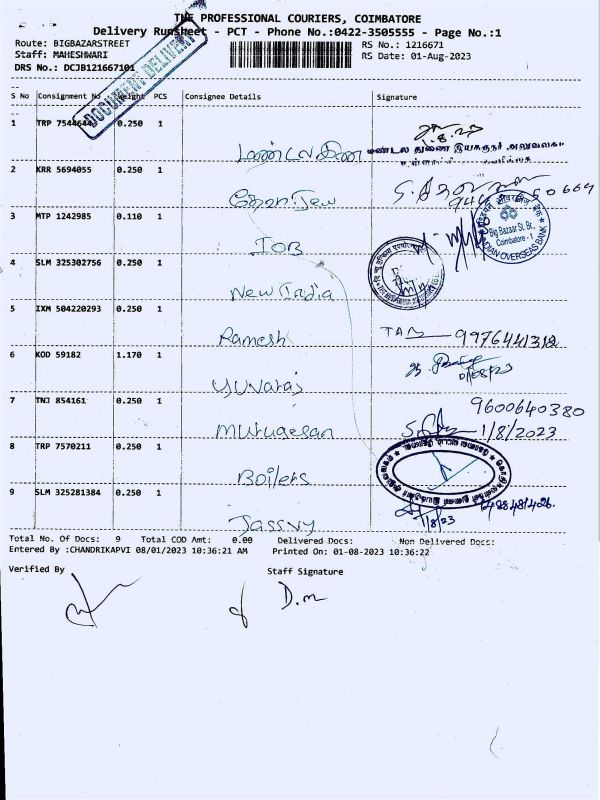 THE PROFESSIONAL COURIERS, COIMBATORE
Delivery Runsheet - PCT - Phone No.:0422-3505555 - Page No.:1
Route: BIGBAZARSTREET RS No.: 1216671
Staff: MAHESHWARI RS Date: 01-Aug-2023
DRS No.: DCJB121667101
DOCUMENT DELIVERY
S No Consignment No Weight PCS Consignee Details Signature
1 TRP 0.250 1
1.8.23
மண்டல துணை இயக்குநர் அலுவலகம்
2 KRR 5694055 0.250 1
3 MTP 1242985 0.110 1
IOB
Big Bazaar St. Br.,
Coimbatore - 1
INDIAN OVERSEAS BANK
4 SLM 325302756 0.250 1
New India
5 IXM 504220293 0.250 1
Ramesh 9976441312
6 KOD 59182 1.170 1
01/08/23
Yuvaraj
7 TNJ 854161 0.250 1 9600640380
Murugesan 1/8/2023
8 TRP 7570211 0.250 1
Boilers
9 SLM 325281384 0.250 1
1/8/23
Jassvy
Total No. Of Docs: 9 Total COD Amt: 0.00 Delivered Docs: Non Delivered Docs:
Entered By :CHANDRIKAPVI 08/01/2023 10:36:21 AM Printed On: 01-08-2023 10:36:22
Verified By Staff Signature
D.m